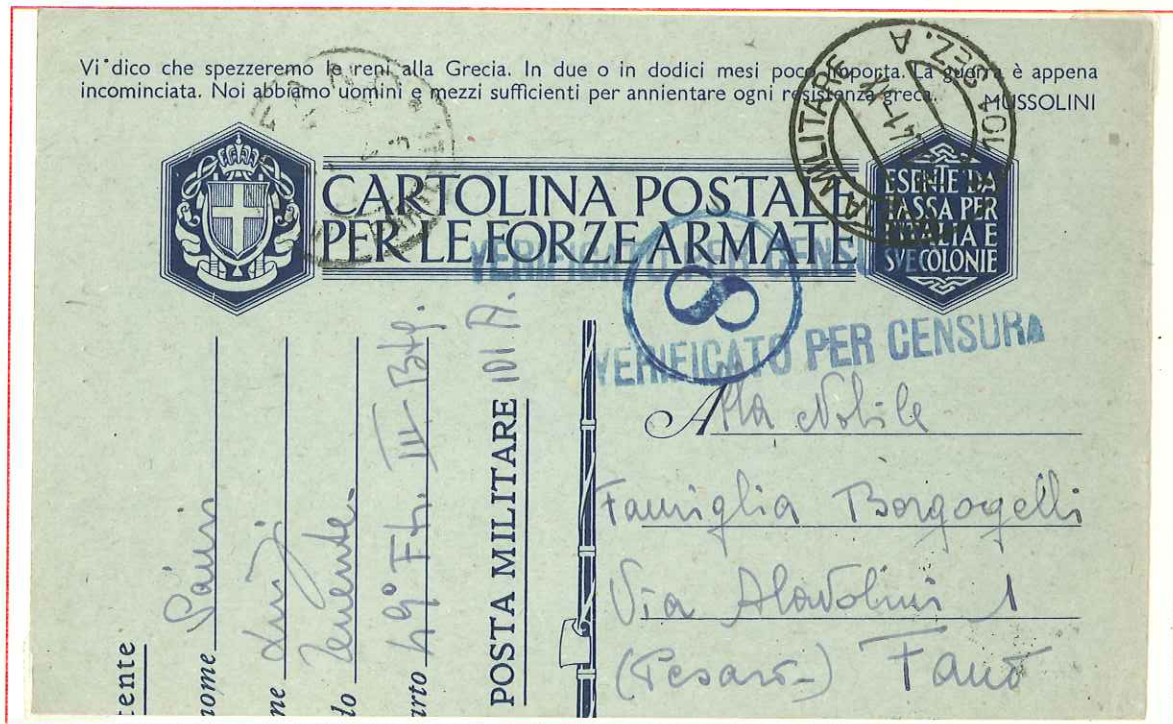 Vi dico che spezzeremo le reni alla Grecia. In due o in dodici mesi poco importa. La guerra è appena
incominciata. Noi abbiamo uomini e mezzi sufficienti per annientare ogni resistenza greca.
MUSSOLINI
CARTOLINA POSTALE
PER LE FORZE ARMATE
ESENTE DA
TASSA PER
L'ITALIA E
SVE COLONIE
MILITARE
101 SEZ. A
41
VERIFICATO PER CENSURA
8
VERIFICATO PER CENSURA
Alla Nobile
Famiglia Borgogelli
Via Alavolini 1
(Pesaro-) Fano
tente
nome
ne Luigi
do Tenente
arto 49° Ftr. III Btg.
POSTA MILITARE 101 A.